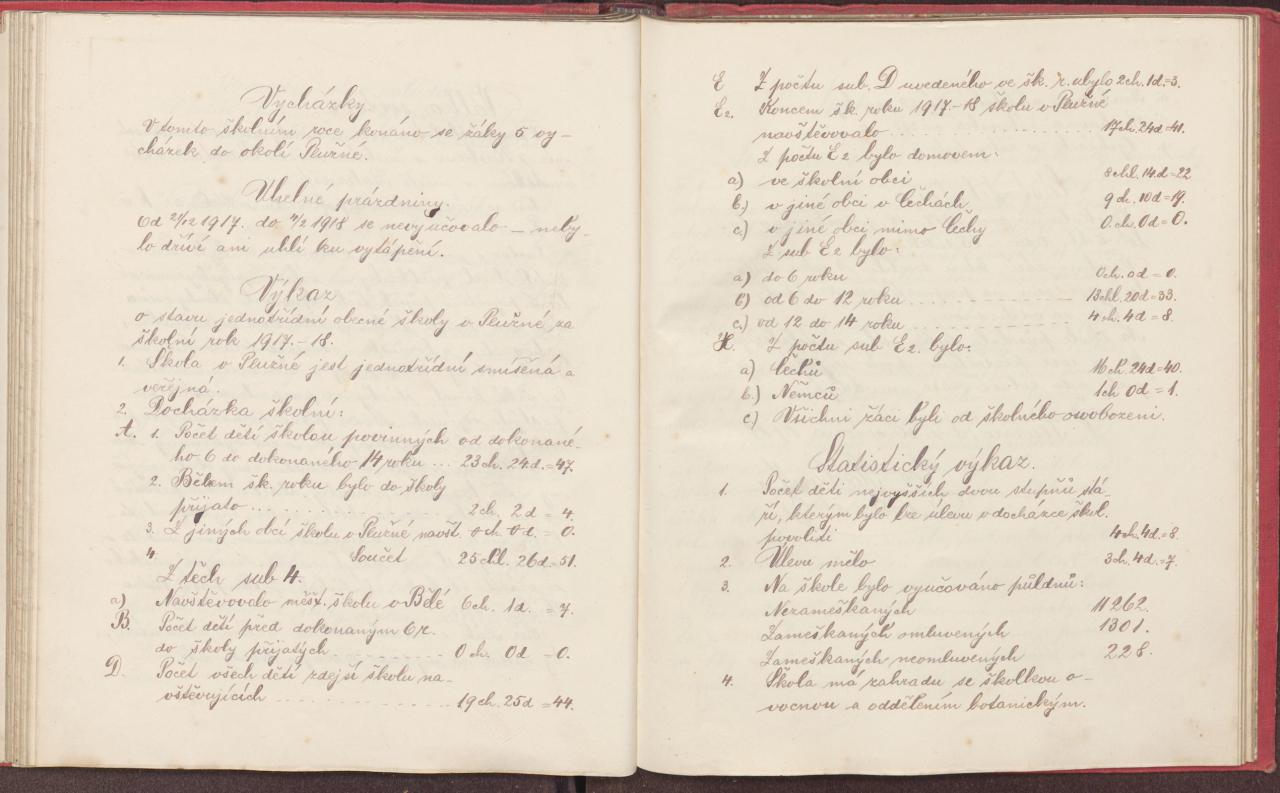 Vycházky
V tomto školním roce konáno se žáky 5 vy-
cházek do okolí Plužné.
Uhelné prázdniny.
Od 21/12 1917. do 11/2 1918 se nevyučovalo – neby-
lo dříví ani uhlí ku vytápění.
Výkaz
o stavu jednotřídní obecné školy v Plužné za
školní rok 1917.-18.
1. Škola v Plužné jest jednotřídní smíšená a
veřejná.
2. Docházka školní:
A. 1. Počet dětí školou povinných od dokonané-
ho 6 do dokonaného 14 roku ... 23 ch. 24d. = 47.
2. Během šk. roku bylo do školy
přijato ... 2 ch. 2 d = 4.
3. Z jiných obcí školu v Plužné navšt. 0 ch. 0 d. = 0.
4. Součet 25 chl. 26 d. = 51.
Z těch sub 4.
a) Navštěvovalo měšť. školu v Bělé 6 ch. 1 d. = 7.
B. Počet dětí před dokonaným 6 r.
do školy přijatých ... 0 ch. 0d – 0.
D. Počet všech dětí zdejší školu na-
vštěvujících ... 19 ch. 25d = 44.
E Z počtu sub. D uvedeného ve šk. r. ubylo 2 ch. 1 d. = 3.
E2. Koncem šk. roku 1917.-18 školu v Plužné
navštěvovalo ... 17 ch. 24 d = 41.
Z počtu E2 bylo domovem:
a) ve školní obci 8 chl. 14. d = 22
b.) v jiné obci v Čechách 9 ch. 10 d = 19.
c.) v jiné obci mimo Čechy 0. ch. 0 d = 0.
Z sub E2 bylo:
a) do 6 roku 0 ch. 0 d = 0.
b) od 6 do 12 roku ... 13 chl. 20 d. = 33.
c.) od 12 do 14 roku ... 4 ch. 4 d = 8.
H. Z počtu sub E2. bylo:
a) Čechů 16 ch. 24 d = 40.
b.) Němců 1 ch 0 d = 1.
c) Všichni žáci byli od školného osvobozeni.
Statistický výkaz.
1. Počet dětí nejvyšších dvou stupňů stá-
ří, kterým bylo lze úlevu v docházce škol.
povoliti 4 ch. 4 d. = 8.
2. Úlevu mělo 3 ch. 4 d. = 7.
3. Na škole bylo vyučováno půldnů:
Nezameškaných 11 262.
Zameškaných omluvených 1301.
Zameškaných neomluvených 228.
4. Škola má zahradu se školkou o-
vocnou a oddělením botanickým.